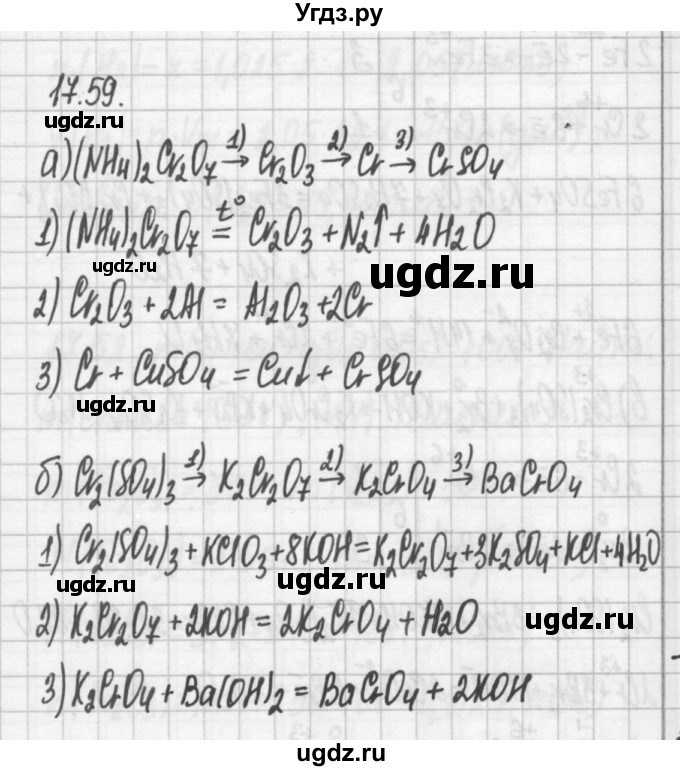 Угдз.ру
17.59.
ugdz.ru
а) (NH4)2Cr2O7 →1) Cr2O3 →2) Cr →3) CrSO4
1) (NH4)2Cr2O7 =t° Cr2O3 + N2↑ + 4H2O
ugdz.ru
ugdz.ru
2) Cr2O3 + 2Al = Al2O3 + 2Cr
3) Cr + CuSO4 = Cu↓ + CrSO4
ugdz.ru
б) Cr2(SO4)3 →1) K2Cr2O7 →2) K2CrO4 →3) BaCrO4
1) Cr2(SO4)3 + KClO3 + 8KOH = K2Cr2O7 + 3K2SO4 + KCl + 4H2O
ugdz.ru
ugdz.ru
2) K2Cr2O7 + 2KOH = 2K2CrO4 + H2O
ugdz.ru
3) K2CrO4 + Ba(OH)2 = BaCrO4 + 2KOH
ugdz.ru